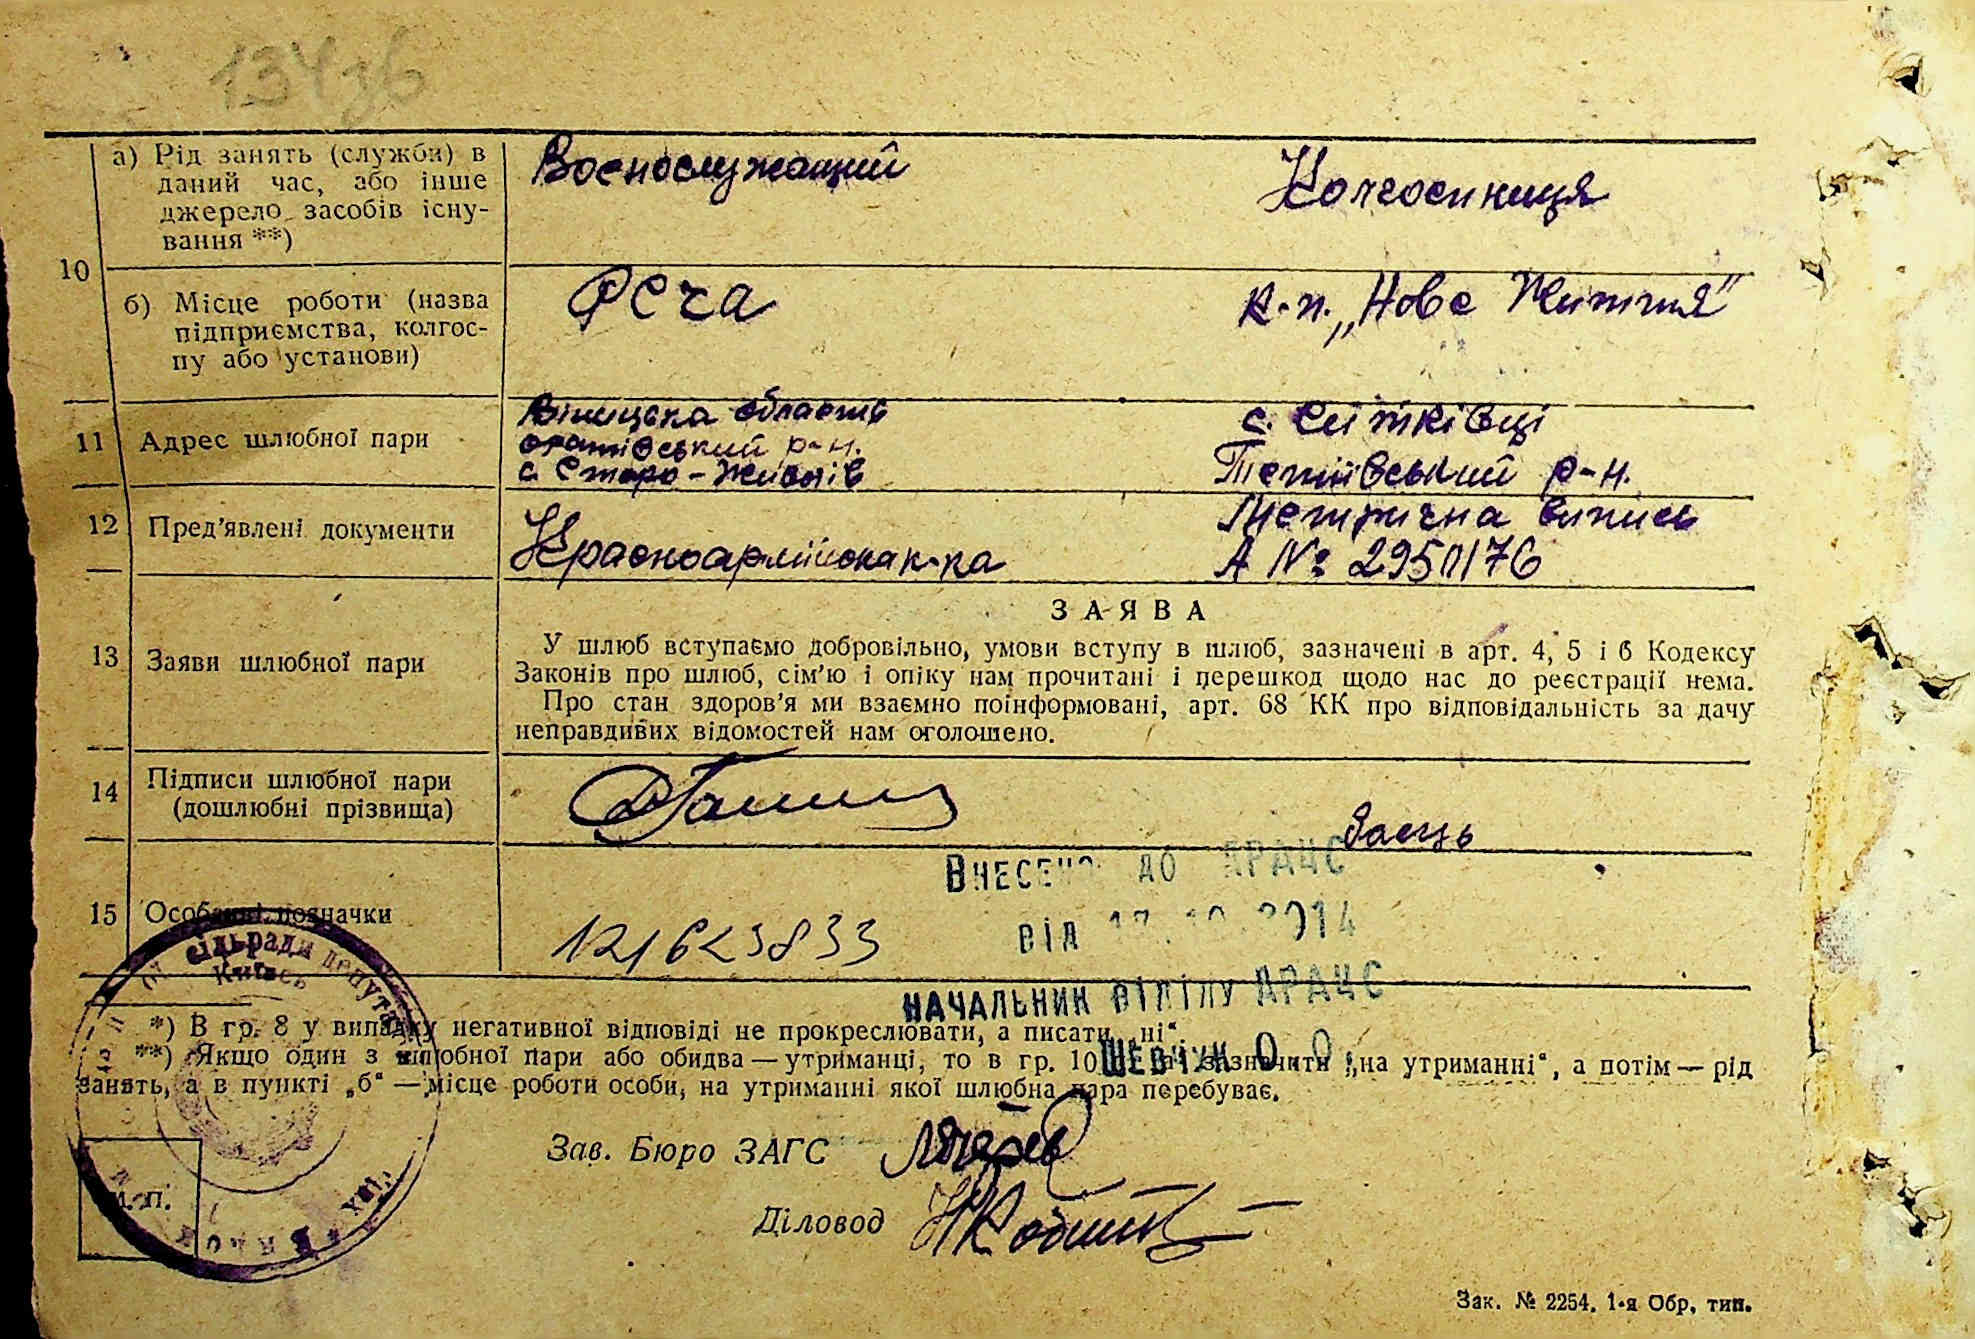 134зв
а) Рід занять (служби) в даний час, або інше джерело засобів існування **)
Воєнослужащий
Колгоспниця
10
б) Місце роботи (назва підприємства, колгоспу або установи)
РСЧА
к-п. „Нове Життя"
11
Адрес шлюбної пари
Віницска область
оратівський р-н.
с. Старо-Животів
с. Ситківці
Теплівський р-н.
12
Пред'явлені документи
Красноармійска к-ка
Метрична випись
А № 2950176
13
Заяви шлюбної пари
ЗАЯВА
У шлюб вступаємо добровільно, умови вступу в шлюб, зазначені в арт. 4, 5 і 6 Кодексу
Законів про шлюб, сім'ю і опіку нам прочитані і перешкод щодо нас до реєстрації нема.
Про стан здоров'я ми взаємно поінформовані, арт. 68 КК про відповідальність за дачу
неправдивих відомостей нам оголошено.
14
Підписи шлюбної пари
(дошлюбні прізвища)
Заєць
Внесено до ДРАЦС
15
Особливі позначки
121623833
від 17.10.2014
сільради депутатів
НАЧАЛЬНИК ВІДІЛУ ДРАЦС
*) В гр. 8 у випадку негативної відповіді не прокреслювати, а писати „ні“.
ШЕВЧУК О.О.
**) Якщо один з шлюбної пари або обидва — утриманці, то в гр. 10 зазначити „на утриманні“, а потім — рід
занять, а в пункті „б“ — місце роботи особи, на утриманні якої шлюбна пара перебуває.
Зав. Бюро ЗАГС
М. П.
Діловод
Зак. № 2254. 1-я Обр. тип.